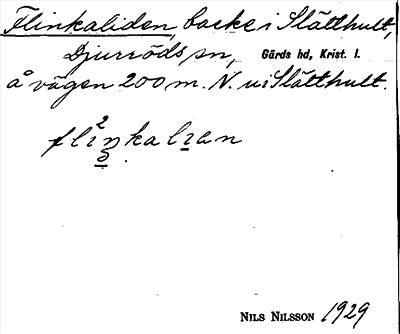 Flinkaliden, backe i Slätthult,
Djurröds sn, Gärds hd, Krist. l.
å vägen 200 m. N. ui Slätthult.
flinkalian
NILS NILSSON 1929